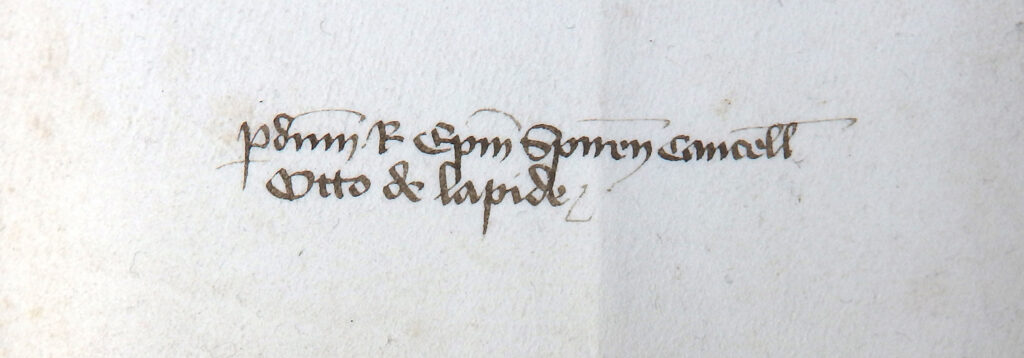 p dnm R Epm Spiren Cancell
Otto de lapide